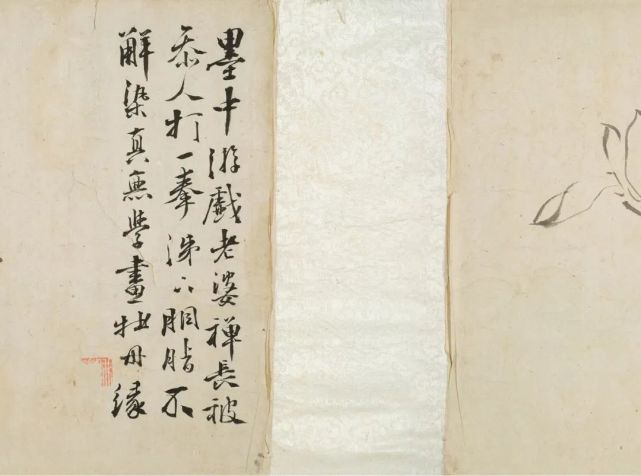 墨中游戲老婆禪長被
參人打一拳涕下胭脂不
解染真無學畫牡丹緣